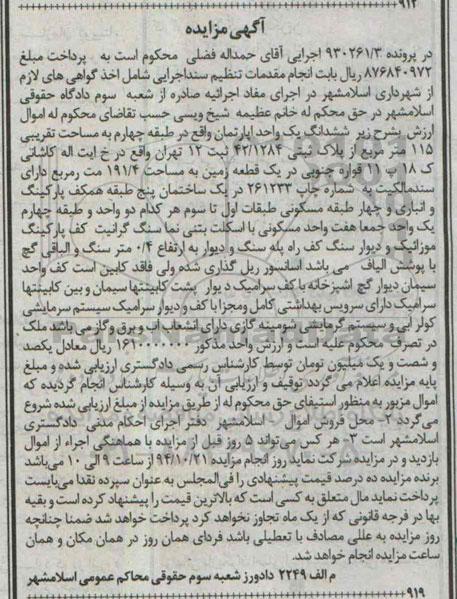 ۹۱۲
آگهی مزایده
در پرونده ۹۳۰۲۶۱/۳ اجرایی آقای حمداله فضلی محکوم است به پرداخت مبلغ
۸۷۶۸۴۰۹۷۲ ریال بابت انجام مقدمات تنظیم سنداجرایی شامل اخذ گواهی های لازم
از شهرداری اسلامشهر در اجرای مفاد اجرائیه صادره از شعبه سوم دادگاه حقوقی
اسلامشهر در حق محکم له خانم عظیمه شیخ ویسی حسب تقاضای محکوم له اموال
ارزش بشرح زیر ششدانگ یک واحد اپارتمان واقع در طبقه چهارم به مساحت تقریبی
۱۱۵ متر مربع از پلاک ثبتی ۴۲/۱۲۸۴ ثبت ۱۲ تهران واقع در خ ایت اله کاشانی
ک ۱۸ پ ۱۱ قواره جنوبی در یک قطعه زمین به مساحت ۱۹۱/۴ مت رمربع دارای
سندمالکیت به شماره چاپ ۲۶۱۲۳۳ در یک ساختمان پنج طبقه همکف پارکینگ
و انباری و چهار طبقه مسکونی طبقات اول تا سوم هر کدام دو واحد و طبقه چهارم
یک واحد جمعا هفت واحد مسکونی با اسکلت بتنی نما سنگ گرانیت کف پارکینگ
موزائیک و دیوار سنگ کف راه پله سنگ و دیوار به ارتفاع ۰/۴ متر سنگ و الباقی گچ
با پوشش الیاف می باشد اسانسور ریل گذاری شده ولی فاقد کابین است کف واحد
سیمان دیوار گچ اشپزخانه با کف سرامیک د یوار پشت کابینتها سیمان و بین کابینتها
سرامیک دارای سرویس بهداشتی کامل ومجزا با کف و دیوار سرامیک سیستم سرمایشی
کولر ابی و سیستم گرمایشی شومینه گازی دارای انشعاب اب و برق و گاز می باشد ملک
در تصرف محکوم علیه است و ارزش واحد مذکور ریال معادل یکصد
و شصت و یک میلیون تومان توسط کارشناس رسمی دادگستری ارزیابی شده و مبلغ
پایه مزایده اعلام می گردد توقیف و ارزیابی آن به وسیله کارشناس انجام گردیده که
اموال مزبور به منظور استیفای حق محکوم له از طریق مزایده از مبلغ ارزیابی شده شروع
می‌گردد ۲- محل فروش اموال اسلامشهر دفتر اجرای احکام مدنی دادگستری
اسلامشهر است ۳- هر کس می‌تواند ۵ روز قبل از مزایده با هماهنگی اجراء از اموال
بازدید و در مزایده شرکت نماید روز انجام مزایده ۹۴/۱۰/۲۱ از ساعت ۹ الی ۱۰ می‌باشد
برنده مزایده ده درصد قیمت پیشنهادی را فی‌المجلس به عنوان سپرده نقدا می‌بایست
پرداخت نماید مال متعلق به کسی است که بالاترین قیمت را پیشنهاد کرده است و بقیه
بها در فرجه قانونی که از یک ماه تجاوز نخواهد کرد پرداخت خواهد شد ضمنا چنانچه
روز مزایده به عللی مصادف با تعطیلی باشد فردای همان روز در همان مکان و همان
ساعت مزایده انجام خواهد شد.
م الف ۲۲۴۹ دادورز شعبه سوم حقوقی محاکم عمومی اسلامشهر
۹۱۹